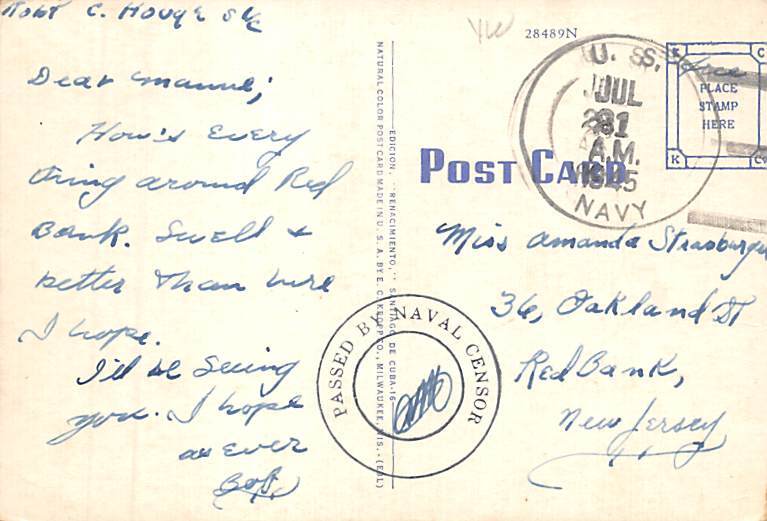 Robt C. Houge S1/c
Dear Mannie;
How's Every
thing around Red
Bank. Swell &
better Than here
I hope.
I'll be Seeing
you. I hope
as Ever
Bob,
EDICION, "RENACIMIENTO," SANTIAGO DE CUBA-16
NATURAL COLOR POST CARD MADE IN U. S. A. BY E. C. KROPP CO., MILWAUKEE, WIS. - (EAL)
28489N
POST CARD
U. S.
JUL
A.M.
1945
NAVY
K
C
PLACE
STAMP
HERE
K
Co
PASSED BY NAVAL CENSOR
Miss Amanda Strasburger
36, Oakland St
Red Bank,
New Jersey